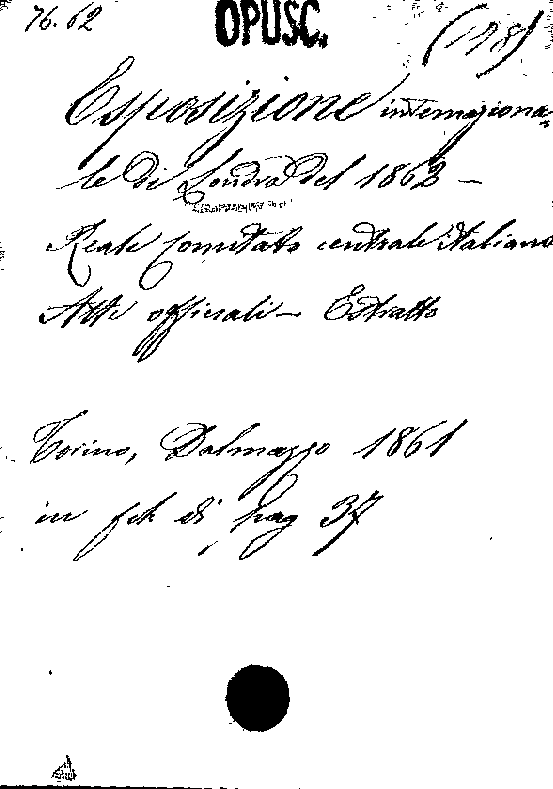 76.62 OPUSC. (18)
Esposizione internaziona-
le di Londra del 1862 -
Reale Comitato centrale italiano
Atti officiali - Estratto
Torino, Dalmazzo 1861
in fol. di pag 37